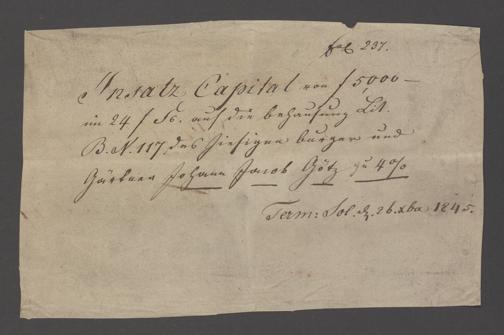 fol 237.
Insatz Capital von f 5,000 —
im 24 f Fs. auf die behausung Lit.
B. N. 117. des hiesigen burger und
Gärtner Johann Jacob Götz zu 4%
Term: Sol. d. 26. xba 1845.